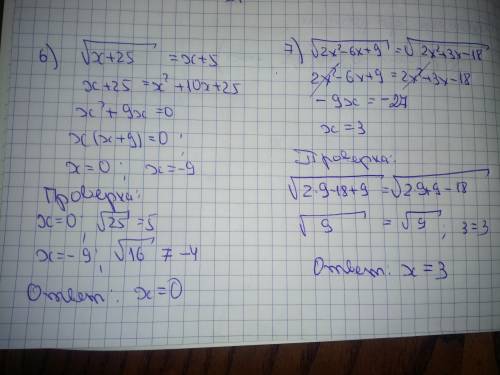 6) √x+25 = x+5
x+25 = x²+10x+25
x²+9x=0
x(x+9)=0;
x=0; x=-9
Проверка:
x=0; √25=5
x=-9; √16 ≠ -4
Ответ: x=0
7) √2x²-6x+9 = √2x²+3x-18
2x²-6x+9=2x²+3x-18
-9x=-27
x=3
Проверка:
√2·9-18+9 = √2·9+9-18
√9 = √9; 3=3
Ответ: x=3